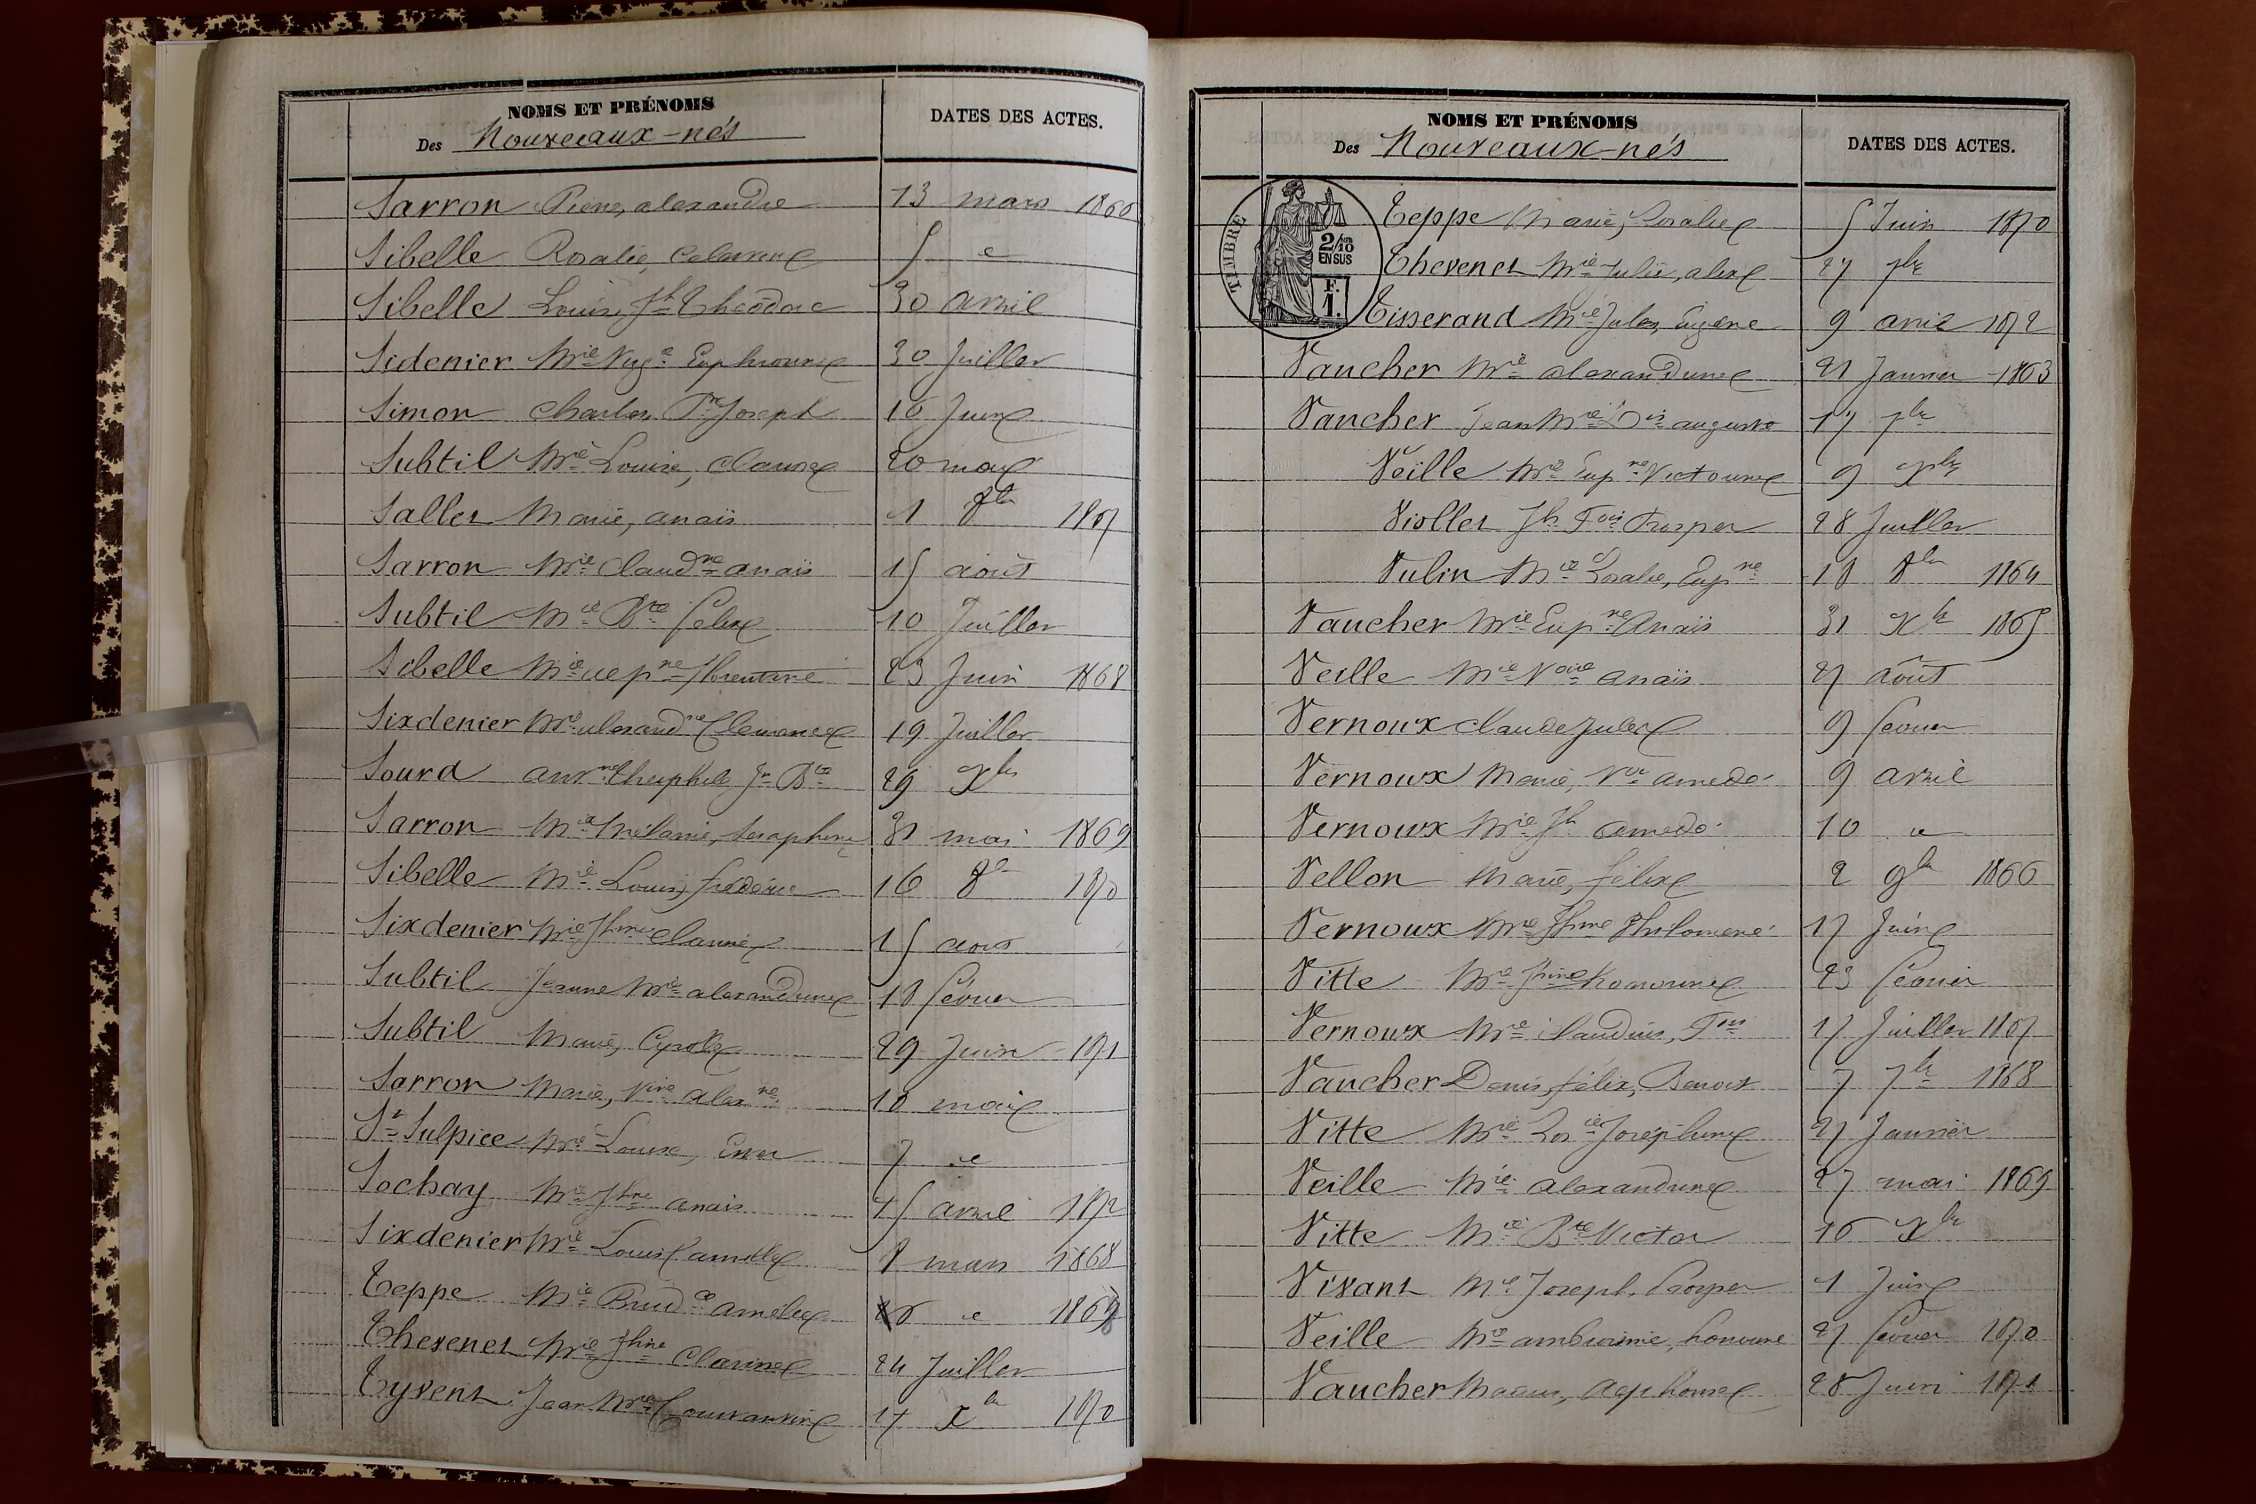 NOMS ET PRÉNOMS
Des Nouveaux-nés
DATES DES ACTES.
Sarron Pierre, alexandre 13 mars 1866
Sibelle Rosalie, 5 "
Sibelle Louis, Jh Théodore 30 avril
Sidenier Mie Euphrosine 30 Juillet
Simon Charles, Joseph 16 Juin
Subtil Mie Louise, Clarisse 20 mai
Sallet Marie, anaïs 1 8bre 1867
Sarron Mie Claudne anaïs 15 août
Subtil Mie Bte Félix 10 Juillet
Sibelle Mie florentine 23 Juin 1868
Sixdenier Mie alexandne Clémence 19 Juillet
Sourd Théophile Jn Bte 29 Xbre
Sarron Mie Mélanie, Séraphine 31 mai 1869
Sibelle Mie Louis, frédéric 16 8bre 1870
Sixdenier Mie Jhine 15 août
Subtil Jeanne Mie alexandrine 18 février
Subtil Marie, 29 Juin 1871
Sarron Marie, alexne 10 mai
St Sulpice Mie Louise, 7 "
Sochay Mie Jhne anaïs 15 avril 1872
Sixdenier Mie Louis Camille 8 mars 1868
Teppe Mie Prudce amélie 6 " 1869
Thevenet Mie Jhine Clarisse 24 Juillet
Tyvent Jean Mie Constantin 17 Xbre 1870
NOMS ET PRÉNOMS
Des Nouveaux-nés
DATES DES ACTES.
TIMBRE
2/10
EN SUS
F.
1.
Teppe Marie, Rosalie 5 Juin 1870
Thevenet Mie Julie, alix 27 7bre
Tisserand Mie Jules, Eugène 9 avril 1872
Vaucher Mie alexandrine 21 Janvier 1863
Vaucher Jean Mie auguste 17 7bre
Veille Mie Eugne Victorine 9 Xbre
Viollet Jh Fois Prosper 28 Juillet
Vulin Mie Rosalie, Eugne 18 8bre 1864
Vaucher Mie Eugne Anaïs 31 Xbre 1865
Veille Mie Voire anaïs 27 Août
Vernoux Claude Jules 9 février
Vernoux Marie, Vor amédé 9 avril
Vernoux Mie Jh amédé 10 "
Vellon Marie, félix 2 9bre 1866
Vernoux Mie Jhine Philomène 17 Juin
Vitte Mie Jhine honorine 23 février
Vernoux Mie Claudius, Fois 17 Juillet 1867
Vaucher Denis, félix, Benoit 7 7bre 1868
Vitte Mie Joséphine 27 Janvier
Veille Mie alexandrine 27 mai 1869
Vitte Mie Bte Victor 16 Xbre
Vivant Mie Joseph, Prosper 1 Juin
Veille Mie ambroisine, honorine 27 février 1870
Vaucher Marius, alphonse 28 Juin 1871